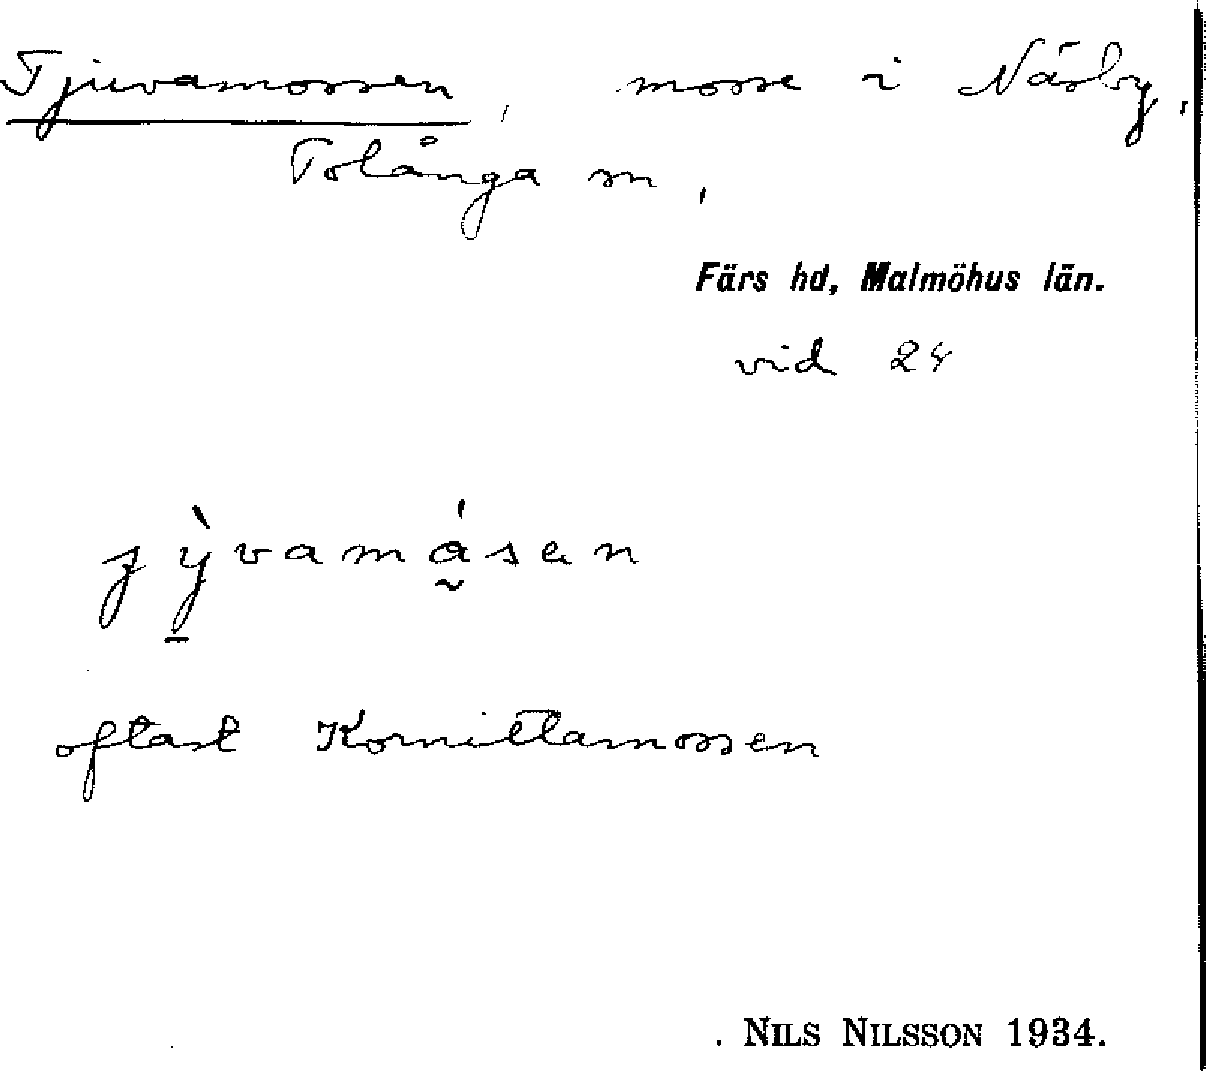 Tjuvamossen, mosse i Näsby,
Tolånga sn,
Färs hd, Malmöhus län.
vid 24
oftast Kornittamossen
NILS NILSSON 1934.